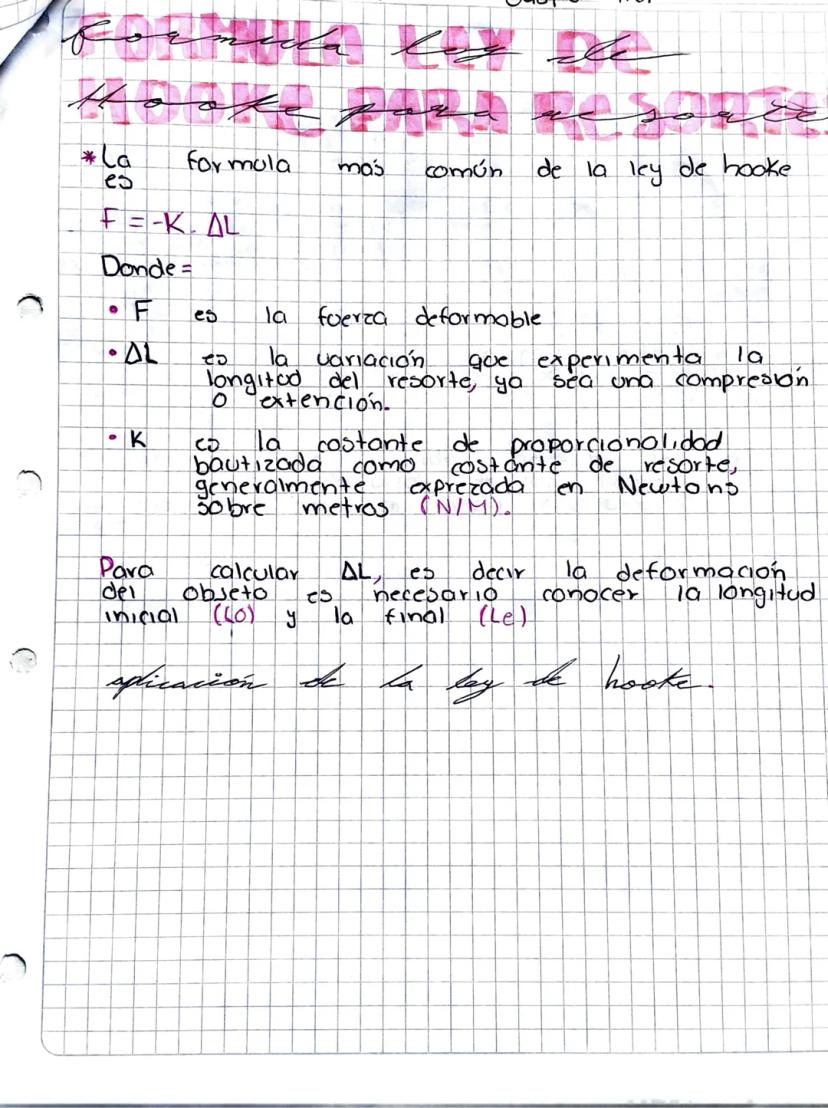 Formula ley de
Hooke para resorte
*La formula más común de la ley de hooke
es
F = -K . ΔL
Donde =
• F es la fuerza deformable
• ΔL es la variación que experimenta la
longitud del resorte, ya sea una compresión
o extención.
• K es la costante de proporcionalidad
bautizada como costante de resorte,
generalmente exprezada en Newtons
sobre metros (N/M).
Para calcular ΔL, es decir la deformación
del objeto es necesario conocer la longitud
inicial (Lo) y la final (Le)
aplicación de la ley de hooke.